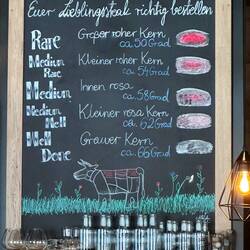 Euer Lieblingssteak richtig bestellen
Rare Großer roher Kern
ca. 50 Grad
Medium Rare Kleiner roher Kern
ca. 54 Grad
Medium Innen rosa
ca. 58 Grad
Medium Well Kleiner rosa Kern
ca. 62 Grad
Well Done Grauer Kern
ca. 66 Grad